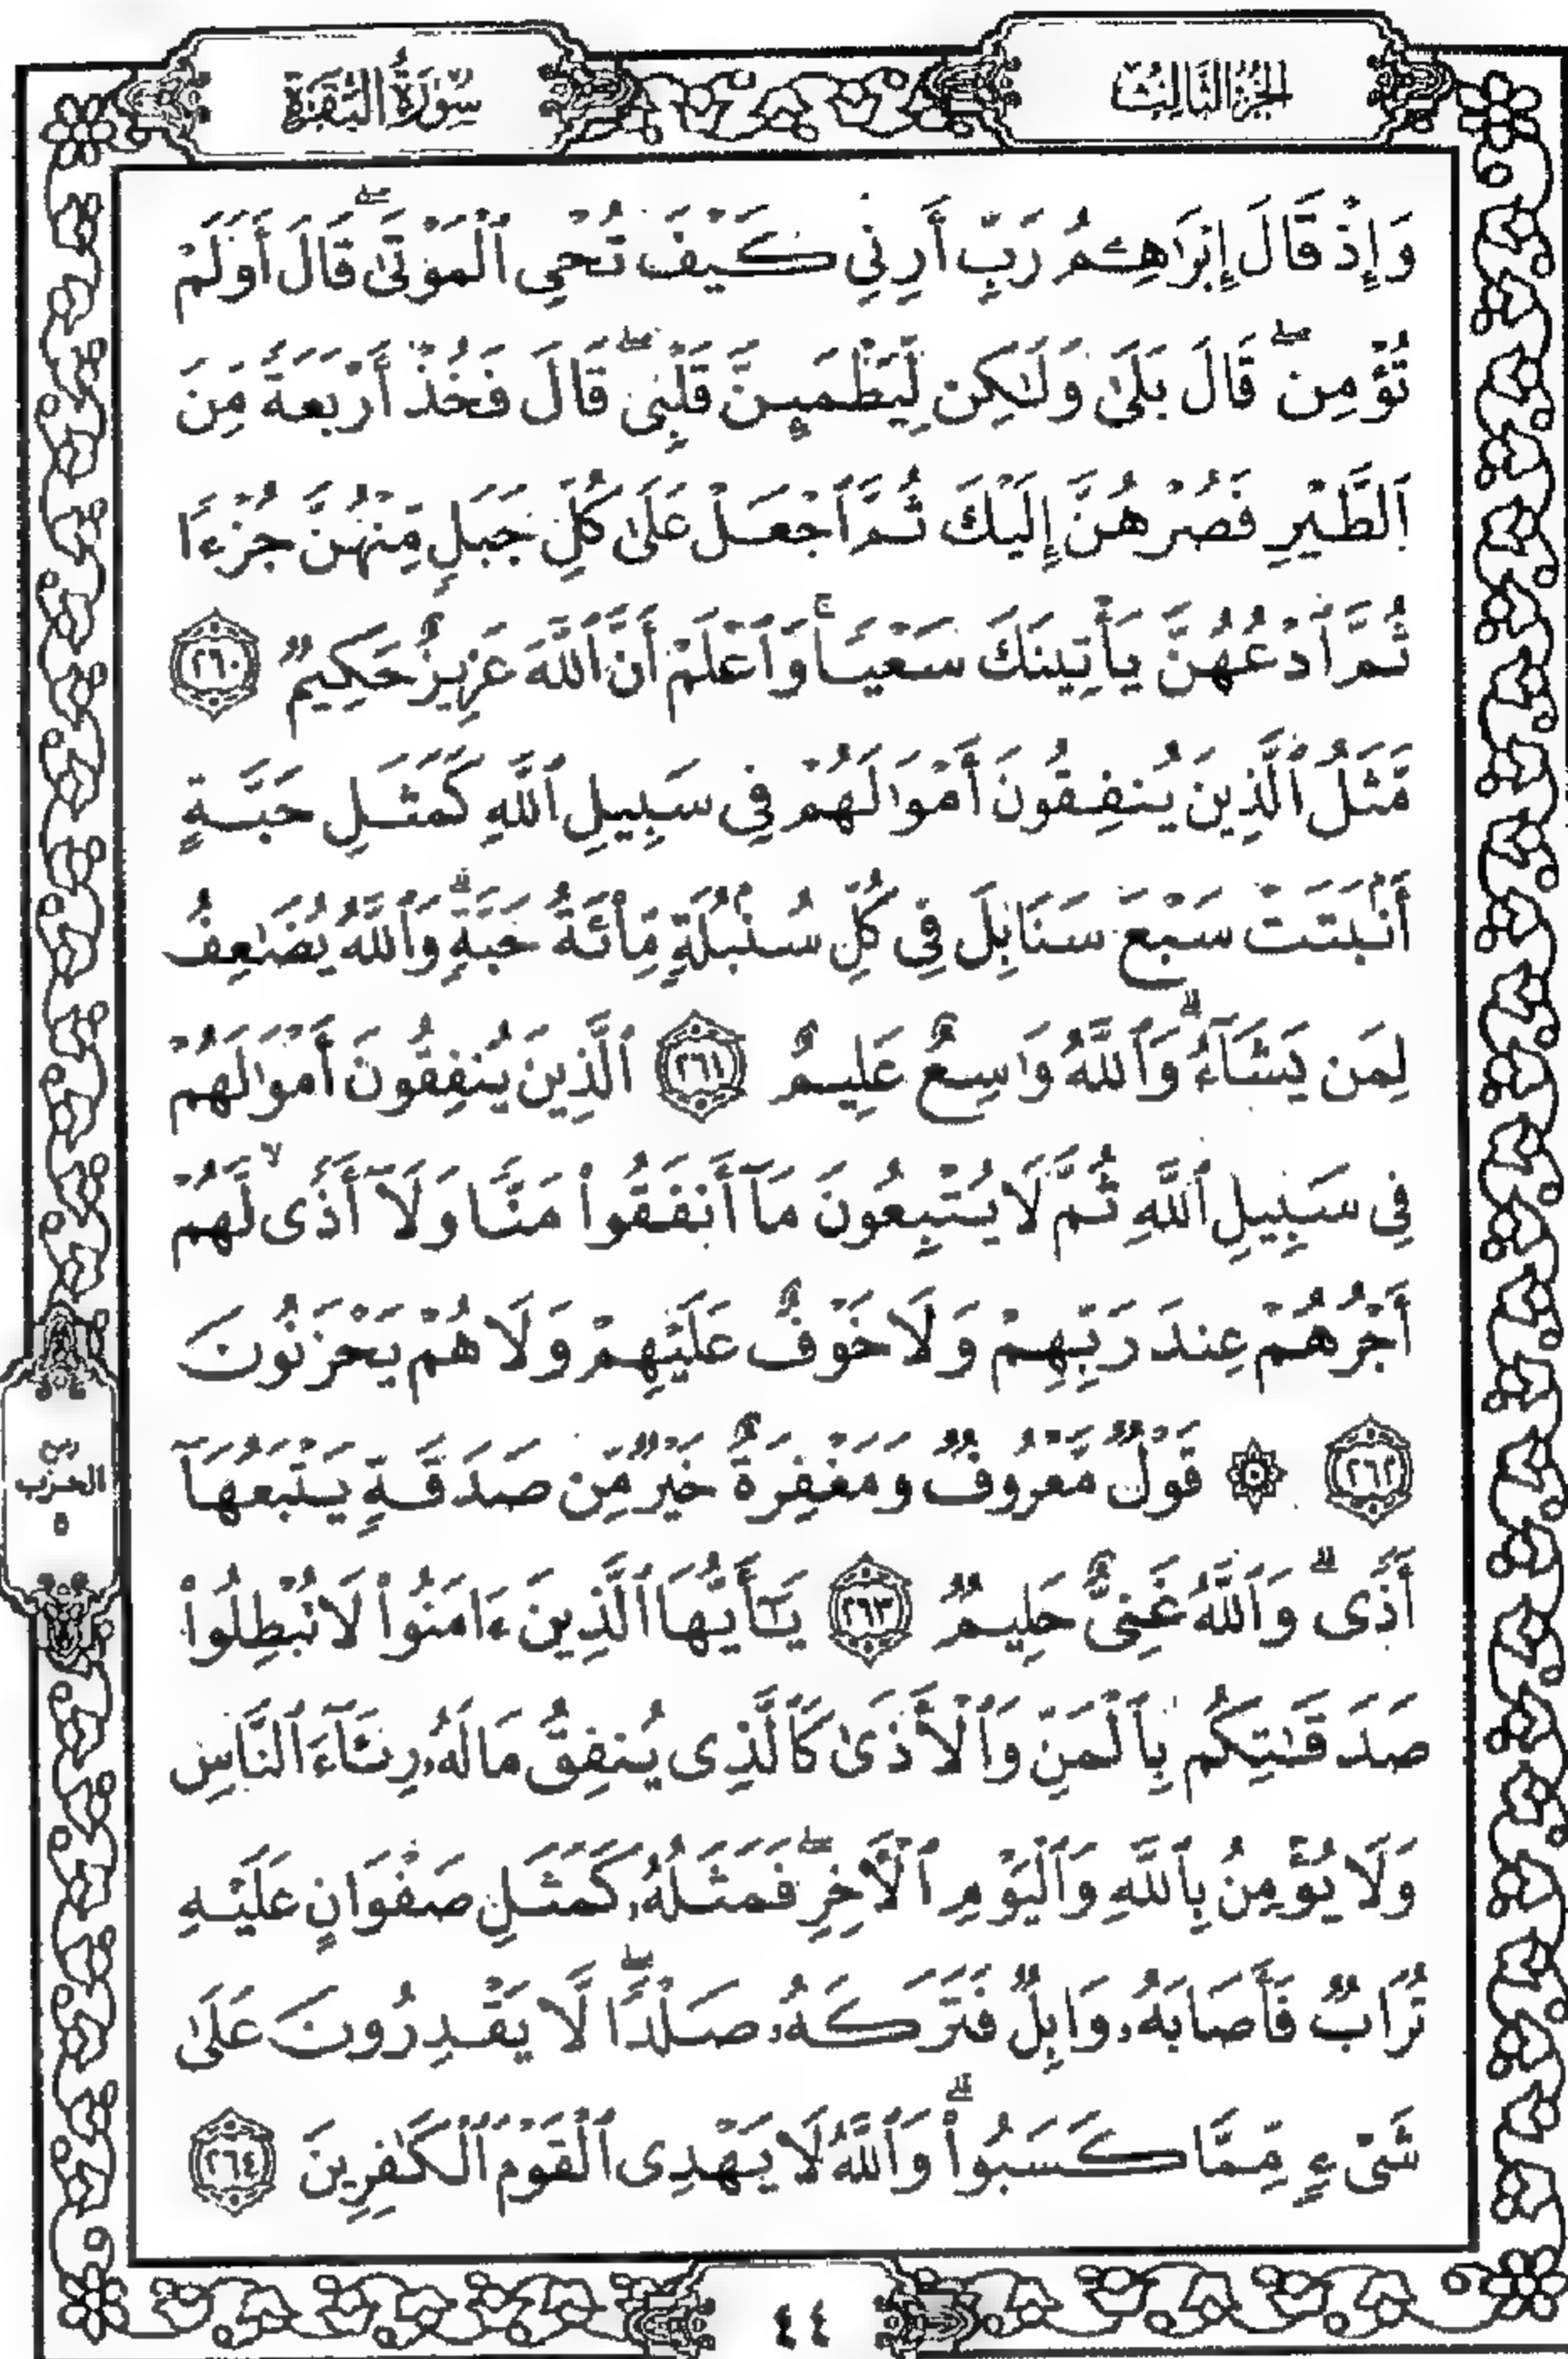 الجزء الثالث
سورة البقرة
وَإِذْ قَالَ إِبْرَٰهِـۧمُ رَبِّ أَرِنِي كَيْفَ تُحْيِ ٱلْمَوْتَىٰ ۖ قَالَ أَوَلَمْ
تُؤْمِن ۖ قَالَ بَلَىٰ وَلَٰكِن لِّيَطْمَئِنَّ قَلْبِى ۖ قَالَ فَخُذْ أَرْبَعَةً مِّنَ
ٱلطَّيْرِ فَصُرْهُنَّ إِلَيْكَ ثُمَّ ٱجْعَلْ عَلَىٰ كُلِّ جَبَلٍ مِّنْهُنَّ جُزْءًا
ثُمَّ ٱدْعُهُنَّ يَأْتِينَكَ سَعْيًا ۚ وَٱعْلَمْ أَنَّ ٱللَّهَ عَزِيزٌ حَكِيمٌ ٢٦٠
مَّثَلُ ٱلَّذِينَ يُنفِقُونَ أَمْوَٰلَهُمْ فِى سَبِيلِ ٱللَّهِ كَمَثَلِ حَبَّةٍ
أَنۢبَتَتْ سَبْعَ سَنَابِلَ فِى كُلِّ سُنۢبُلَةٍ مِّا۟ئَةُ حَبَّةٍ ۗ وَٱللَّهُ يُضَٰعِفُ
لِمَن يَشَآءُ ۗ وَٱللَّهُ وَٰسِعٌ عَلِيمٌ ٢٦١ ٱلَّذِينَ يُنفِقُونَ أَمْوَٰلَهُمْ
فِى سَبِيلِ ٱللَّهِ ثُمَّ لَا يُتْبِعُونَ مَآ أَنفَقُوا۟ مَنًّا وَلَآ أَذًى ۙ لَّهُمْ
أَجْرُهُمْ عِندَ رَبِّهِمْ وَلَا خَوْفٌ عَلَيْهِمْ وَلَا هُمْ يَحْزَنُونَ
٢٦٢ ۞ قَوْلٌ مَّعْرُوفٌ وَمَغْفِرَةٌ خَيْرٌ مِّن صَدَقَةٍ يَتْبَعُهَآ
أَذًى ۗ وَٱللَّهُ غَنِىٌّ حَلِيمٌ ٢٦٣ يَٰٓأَيُّهَا ٱلَّذِينَ ءَامَنُوا۟ لَا تُبْطِلُوا۟
صَدَقَٰتِكُم بِٱلْمَنِّ وَٱلْأَذَىٰ كَٱلَّذِى يُنفِقُ مَالَهُۥ رِئَآءَ ٱلنَّاسِ
وَلَا يُؤْمِنُ بِٱللَّهِ وَٱلْيَوْمِ ٱلْءَاخِرِ ۖ فَمَثَلُهُۥ كَمَثَلِ صَفْوَانٍ عَلَيْهِ
تُرَابٌ فَأَصَابَهُۥ وَابِلٌ فَتَرَكَهُۥ صَلْدًا ۖ لَّا يَقْدِرُونَ عَلَىٰ
شَىْءٍ مِّمَّا كَسَبُوا۟ ۗ وَٱللَّهُ لَا يَهْدِى ٱلْقَوْمَ ٱلْكَٰفِرِينَ ٢٦٤
الحزب
٥
٤٤